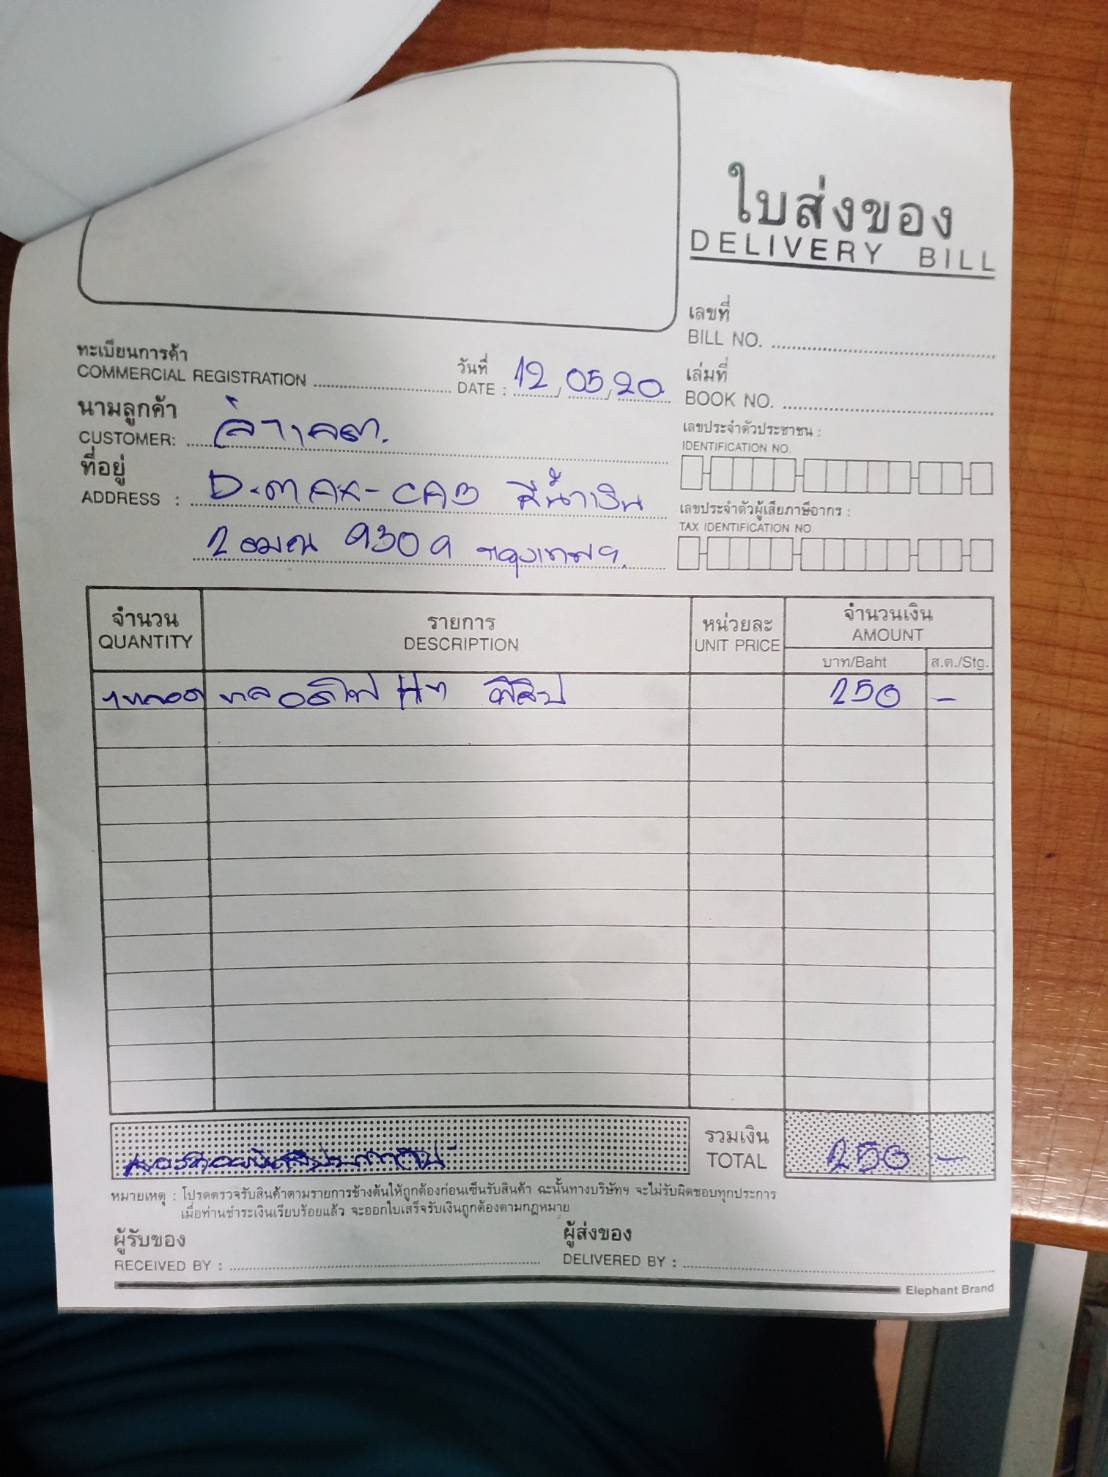 ใบส่งของ
DELIVERY BILL
เลขที่
BILL NO.
ทะเบียนการค้า
COMMERCIAL REGISTRATION
วันที่
DATE : 12, 05, 20
เล่มที่
BOOK NO.
นามลูกค้า
CUSTOMER:
เลขประจำตัวประชาชน :
IDENTIFICATION NO.
ที่อยู่
ADDRESS : D-MAX-CAB สีน้ำเงิน
เลขประจำตัวผู้เสียภาษีอากร :
TAX IDENTIFICATION NO
2 ฒณ 9309 กรุงเทพฯ.
จำนวน รายการ หน่วยละ จำนวนเงิน
QUANTITY DESCRIPTION UNIT PRICE AMOUNT
บาท/Baht ส.ต./Stg.
1หลอด หลอดไฟ H7 ฟิลิป 250 -
รวมเงิน
TOTAL 250 -
หมายเหตุ : โปรดตรวจรับสินค้าตามรายการข้างต้นให้ถูกต้องก่อนเซ็นรับสินค้า ฉะนั้นทางบริษัทฯ จะไม่รับผิดชอบทุกประการ
เมื่อท่านชำระเงินเรียบร้อยแล้ว จะออกใบเสร็จรับเงินถูกต้องตามกฎหมาย
ผู้รับของ ผู้ส่งของ
RECEIVED BY : DELIVERED BY :
Elephant Brand